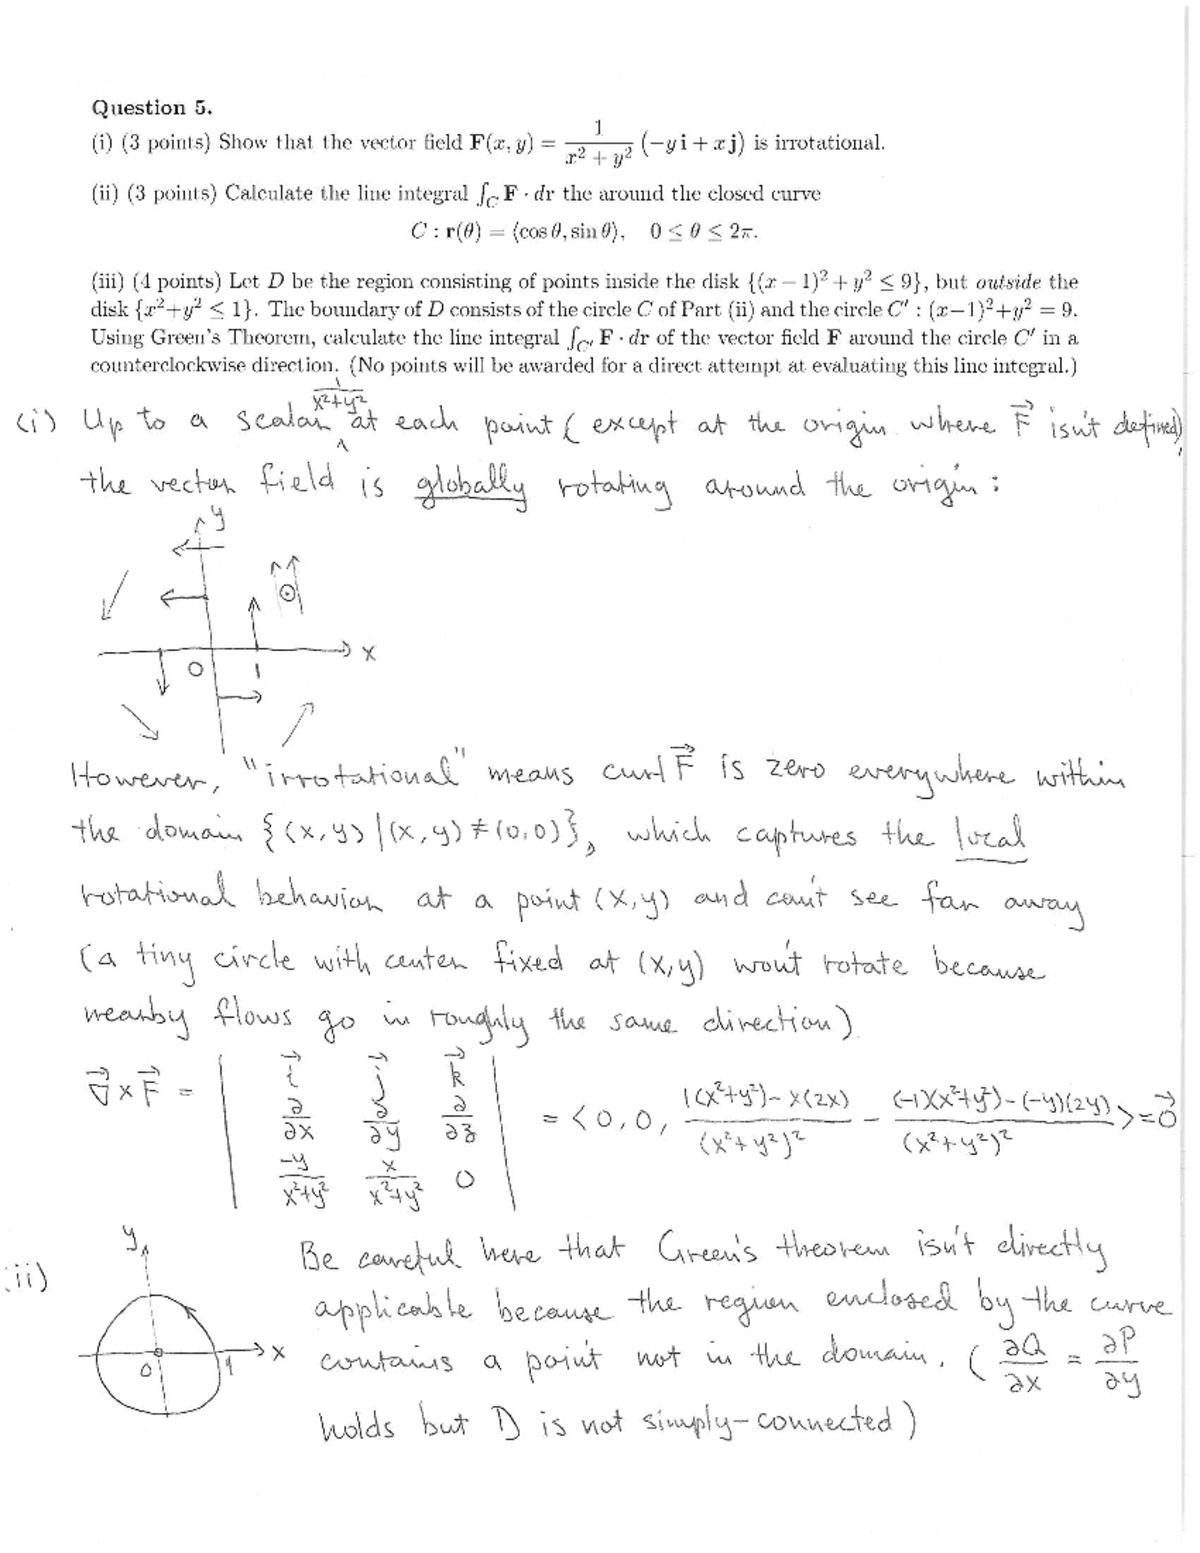 Question 5.
(i) (3 points) Show that the vector field F(x, y) = 1/(x² + y²) (−y i + x j) is irrotational.
(ii) (3 points) Calculate the line integral ∫_C F · dr the around the closed curve
C : r(θ) = ⟨cos θ, sin θ⟩, 0 ≤ θ ≤ 2π.
(iii) (4 points) Let D be the region consisting of points inside the disk {(x − 1)² + y² ≤ 9}, but outside the
disk {x²+y² ≤ 1}. The boundary of D consists of the circle C of Part (ii) and the circle C′ : (x−1)²+y² = 9.
Using Green's Theorem, calculate the line integral ∫_C′ F · dr of the vector field F around the circle C′ in a
counterclockwise direction. (No points will be awarded for a direct attempt at evaluating this line integral.)
1/(x²+y²)
(i) Up to a scalar at each point (except at the origin where F⃗ isn't defined),
the vector field is globally rotating around the origin:
y
0 1 x
However, "irrotational" means curl F⃗ is zero everywhere within
the domain {(x,y) | (x,y) ≠ (0,0)}, which captures the local
rotational behavior at a point (x,y) and can't see far away
(a tiny circle with center fixed at (x,y) won't rotate because
nearby flows go in roughly the same direction)
∇⃗ × F⃗ = | i⃗ j⃗ k⃗ ; ∂/∂x ∂/∂y ∂/∂z ; −y/(x²+y²) x/(x²+y²) 0 | = < 0, 0, (1(x²+y²) − x(2x))/(x²+y²)² − ((−1)(x²+y²) − (−y)(2y))/(x²+y²)² > = 0⃗
y
ii) Be careful here that Green's theorem isn't directly
applicable because the region enclosed by the curve
0 1 x contains a point not in the domain. (∂Q/∂x = ∂P/∂y
holds but D is not simply-connected)